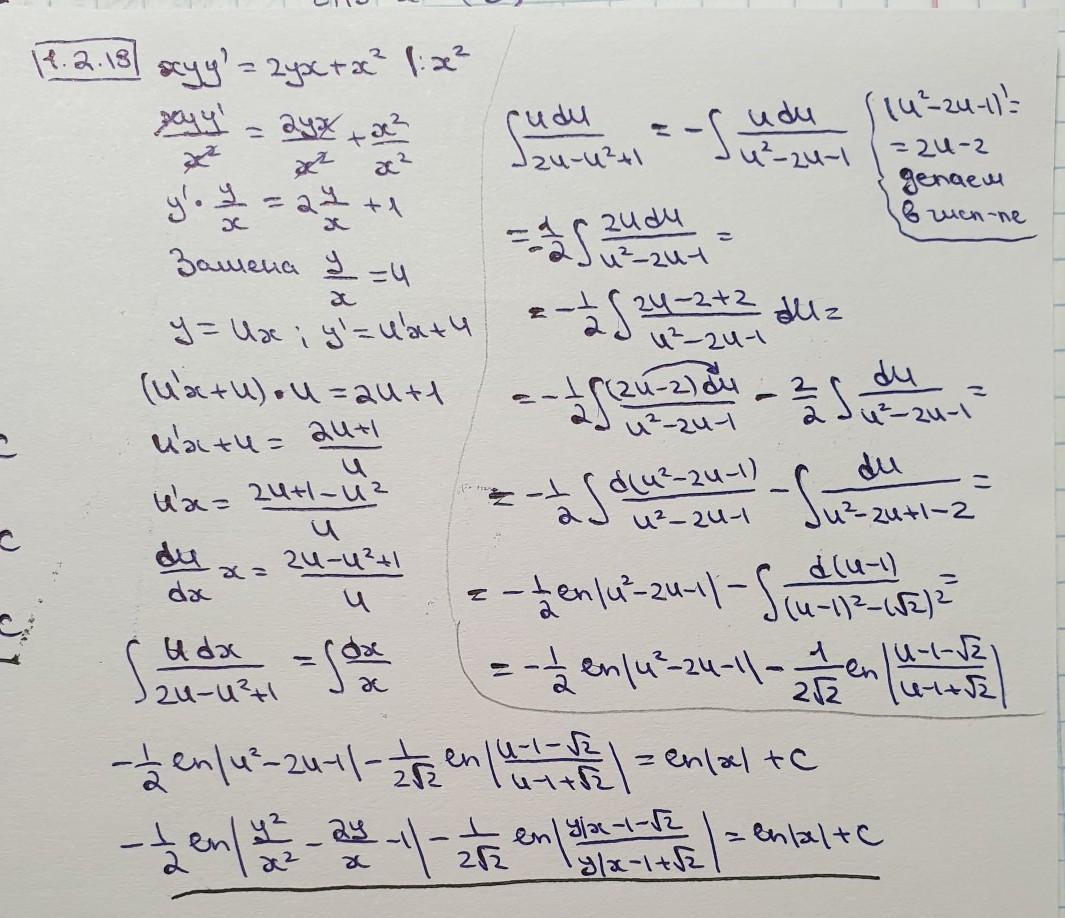 1.2.18 xyy' = 2yx + x² |: x²
xyy'/x² = 2yx/x² + x²/x²
y' · y/x = 2 y/x + 1
Замена y/x = u
y = ux ; y' = u'x + u
(u'x + u) · u = 2u + 1
u'x + u = (2u+1)/u
u'x = (2u+1-u²)/u
du/dx x = (2u-u²+1)/u
∫ u dx/(2u-u²+1) = ∫ dx/x
∫ u du/(2u-u²+1) = -∫ u du/(u²-2u-1)
(u²-2u-1)' =
= 2u-2
делаем
в числ-ле
= -1/2 ∫ 2u du/(u²-2u-1) =
= -1/2 ∫ (2u-2+2)/(u²-2u-1) du =
= -1/2 ∫ (2u-2)du/(u²-2u-1) - 2/2 ∫ du/(u²-2u-1) =
= -1/2 ∫ d(u²-2u-1)/(u²-2u-1) - ∫ du/(u²-2u+1-2) =
= -1/2 ln|u²-2u-1| - ∫ d(u-1)/((u-1)²-(√2)²) =
= -1/2 ln|u²-2u-1| - 1/(2√2) ln|(u-1-√2)/(u-1+√2)|
-1/2 ln|u²-2u-1| - 1/(2√2) ln|(u-1-√2)/(u-1+√2)| = ln|x| + C
-1/2 ln|y²/x² - 2y/x - 1| - 1/(2√2) ln|(y/x-1-√2)/(y/x-1+√2)| = ln|x| + C